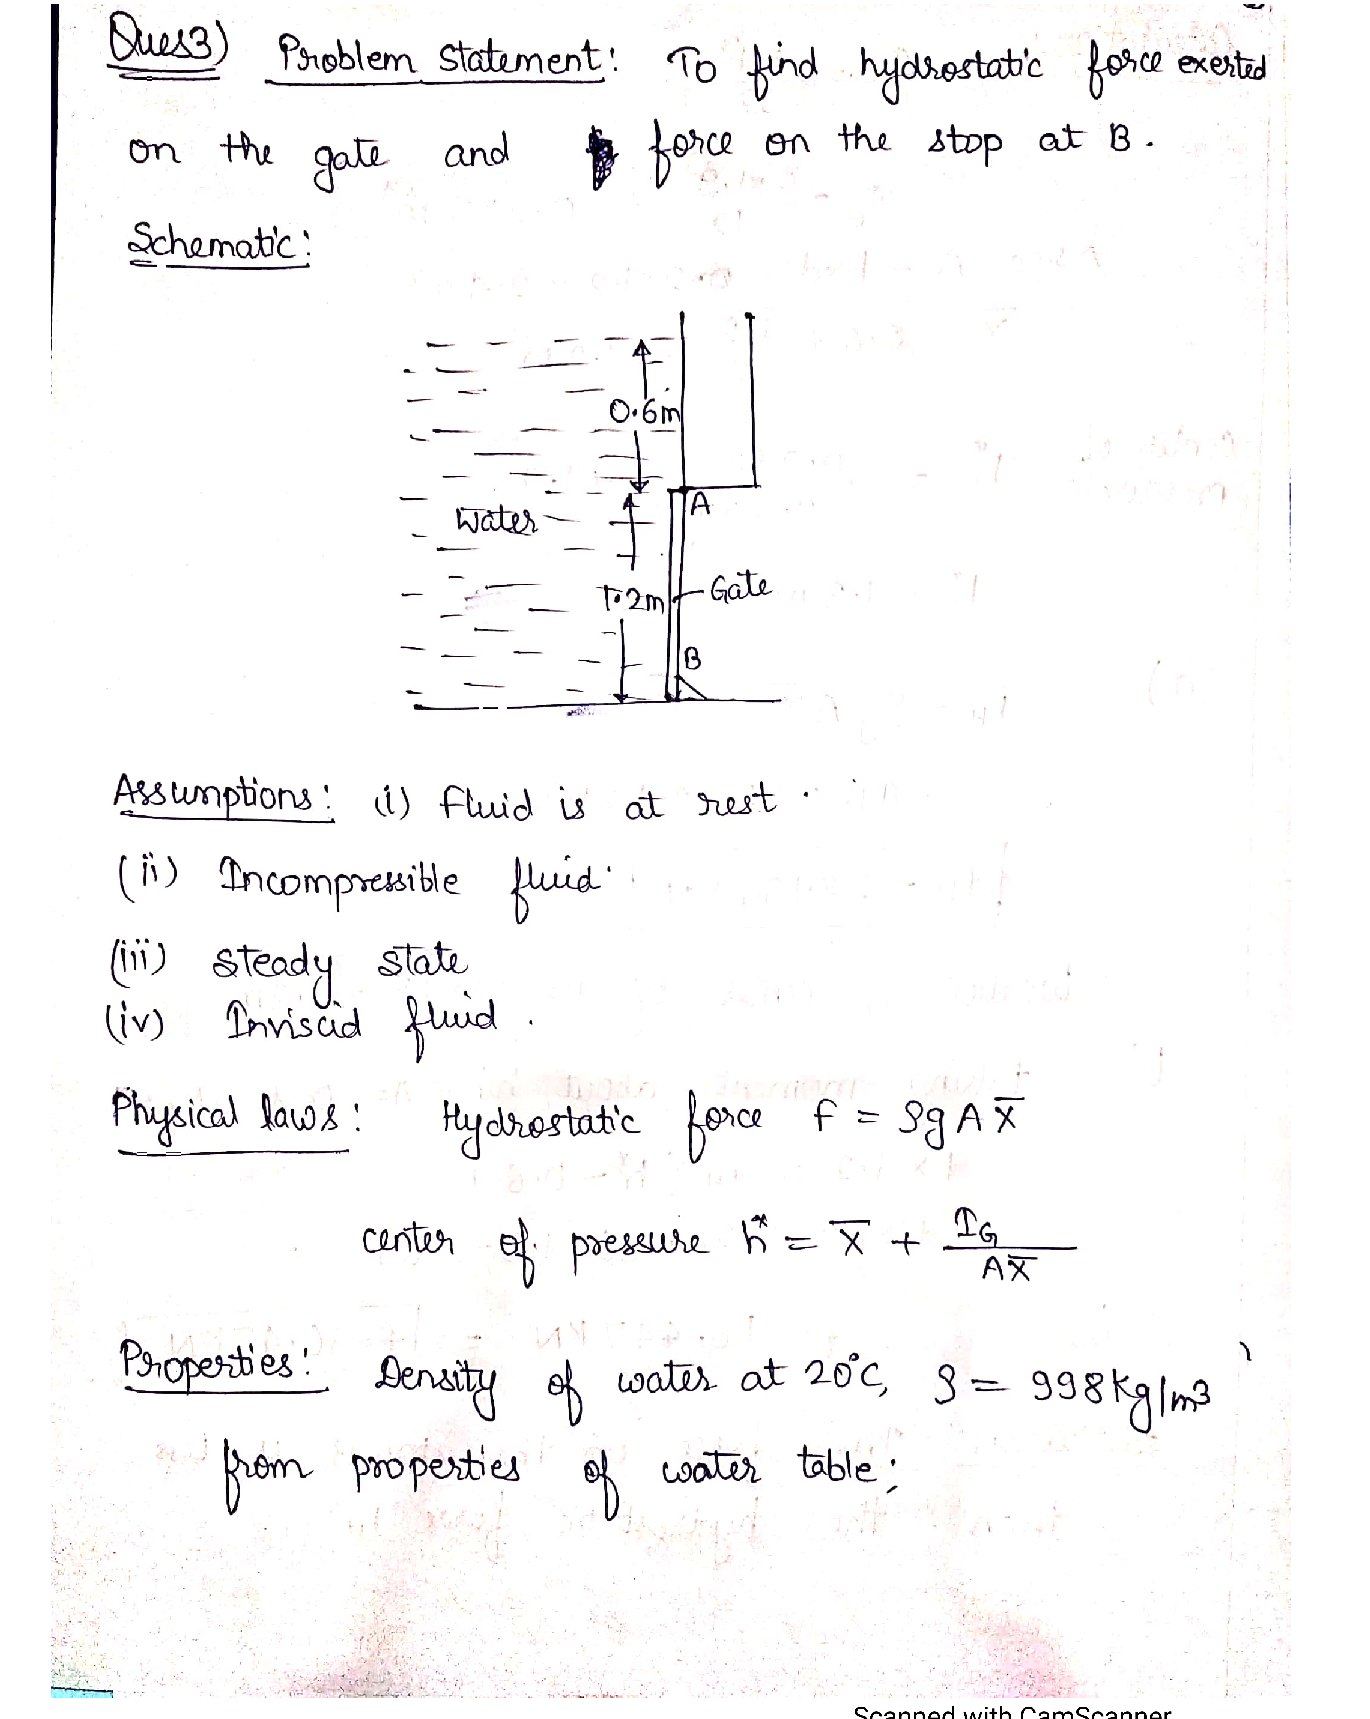 Ques3) Problem Statement: To find hydrostatic force exerted
on the gate and force on the stop at B.
Schematic:
0.6m
A
Water
1.2m
Gate
B
Assumptions: (i) Fluid is at rest.
(ii) Incompressible fluid.
(iii) Steady state
(iv) Inviscid fluid.
Physical laws: Hydrostatic force F = ρg A x̄
center of pressure h* = x̄ + I_G / A x̄
Properties: Density of water at 20°C, ρ = 998 kg/m3
from properties of water table;
Scanned with CamScanner